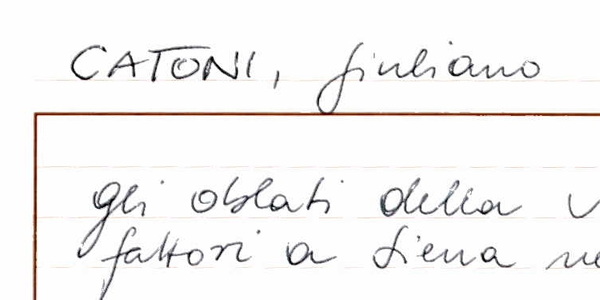 CATONI, Giuliano
gli oblati della
fattori a Siena